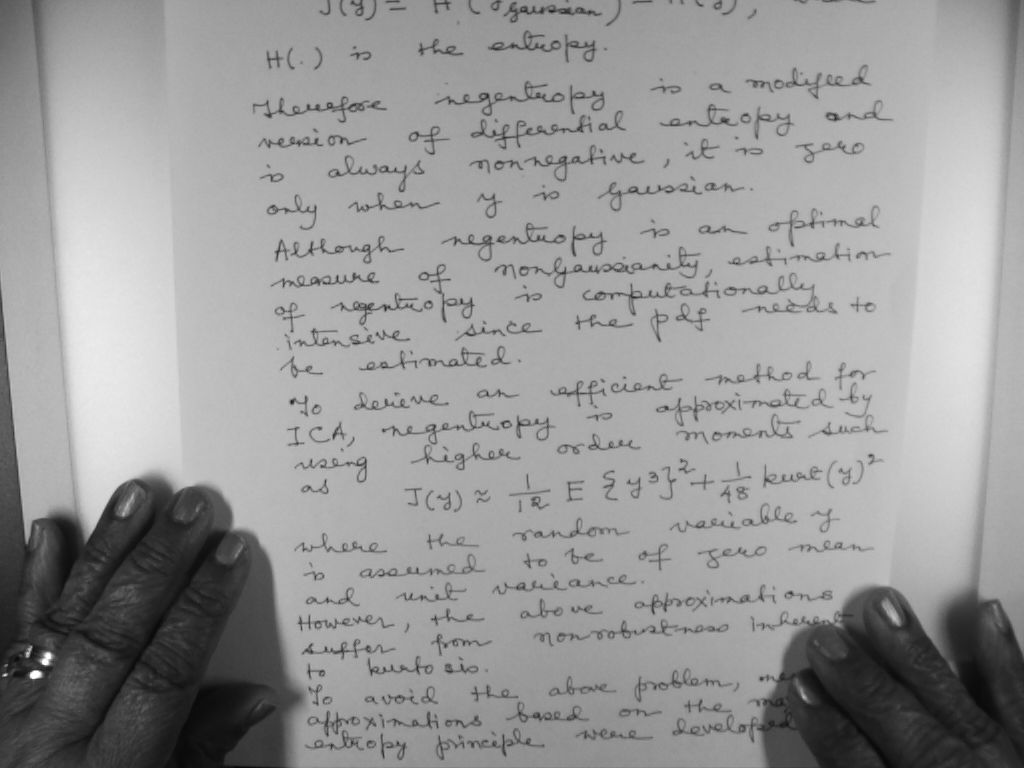 J(y) = H(y gaussian) - H(y),
H(.) is the entropy.
Therefore negentropy is a modified
version of differential entropy and
is always nonnegative, it is zero
only when y is gaussian.
Although negentropy is an optimal
measure of nongaussianity, estimation
of negentropy is computationally
intensive since the pdf needs to
be estimated.
To derieve an efficient method for
ICA, negentropy is approximated by
using higher order moments such
as J(y) ≈ 1/12 E {y³}² + 1/48 kurt(y)²
where the random variable y
is assumed to be of zero mean
and unit variance.
However, the above approximations
suffer from nonrobustness inherent
to kurtosis.
To avoid the above problem,
approximations based on the
entropy principle were developed